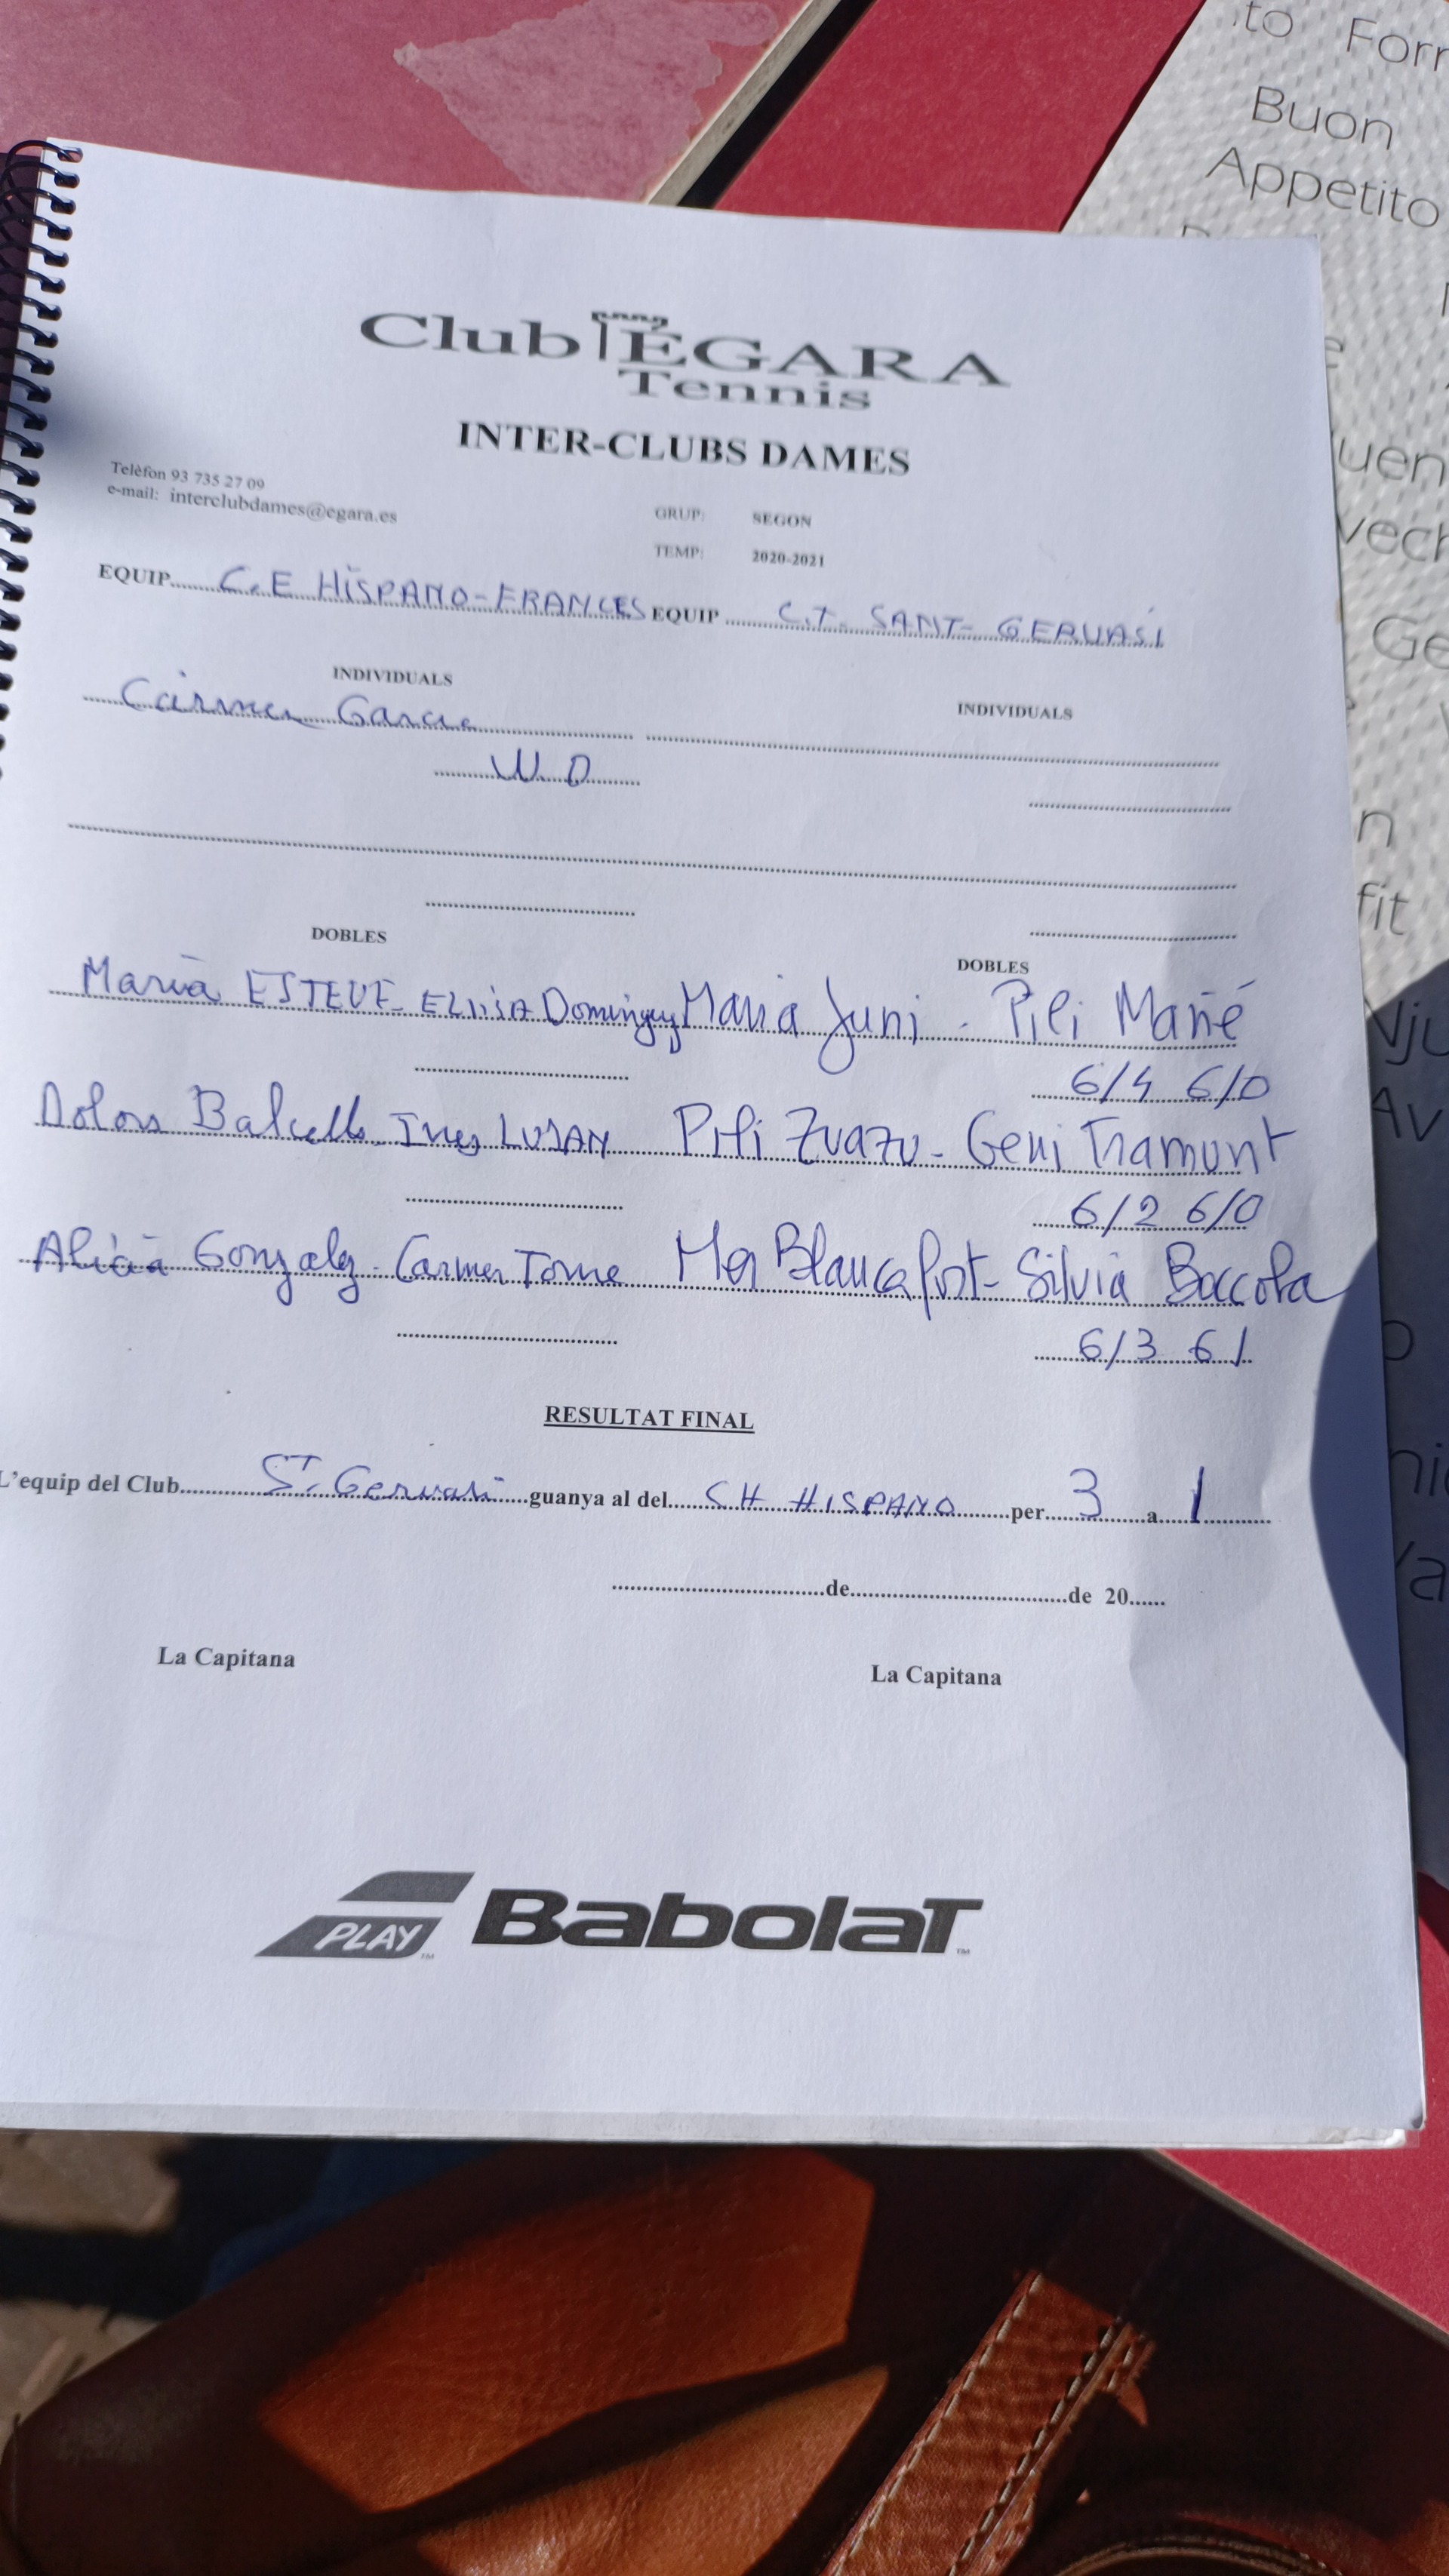 to Forr
Buon
Appetito
Club ÉGARA
Tennis
INTER-CLUBS DAMES
Telèfon 93 735 27 09
e-mail: interclubdames@egara.es
GRUP: SEGON
TEMP: 2020-2021
EQUIP C.E HISPANO-FRANCES EQUIP C.T. SANT-GERVASI
INDIVIDUALS INDIVIDUALS
Carmen Garcia
W.O
DOBLES DOBLES
Maria ESTEVE - ELIISA Dominguez Maria Juni - Pili Mañé
6/4 6/0
Dolors Balcells Ines LUJAN Pili Zuazu - Geni Tramunt
6/2 6/0
Alicia Gonzalez - Carmen Torne Mer Blancafort - Silvia Boccola
6/3 6/
RESULTAT FINAL
L'equip del Club St. Gervasi guanya al del CH HISPANO per 3 a 1
de de 20
La Capitana La Capitana
PLAY BABOLAT